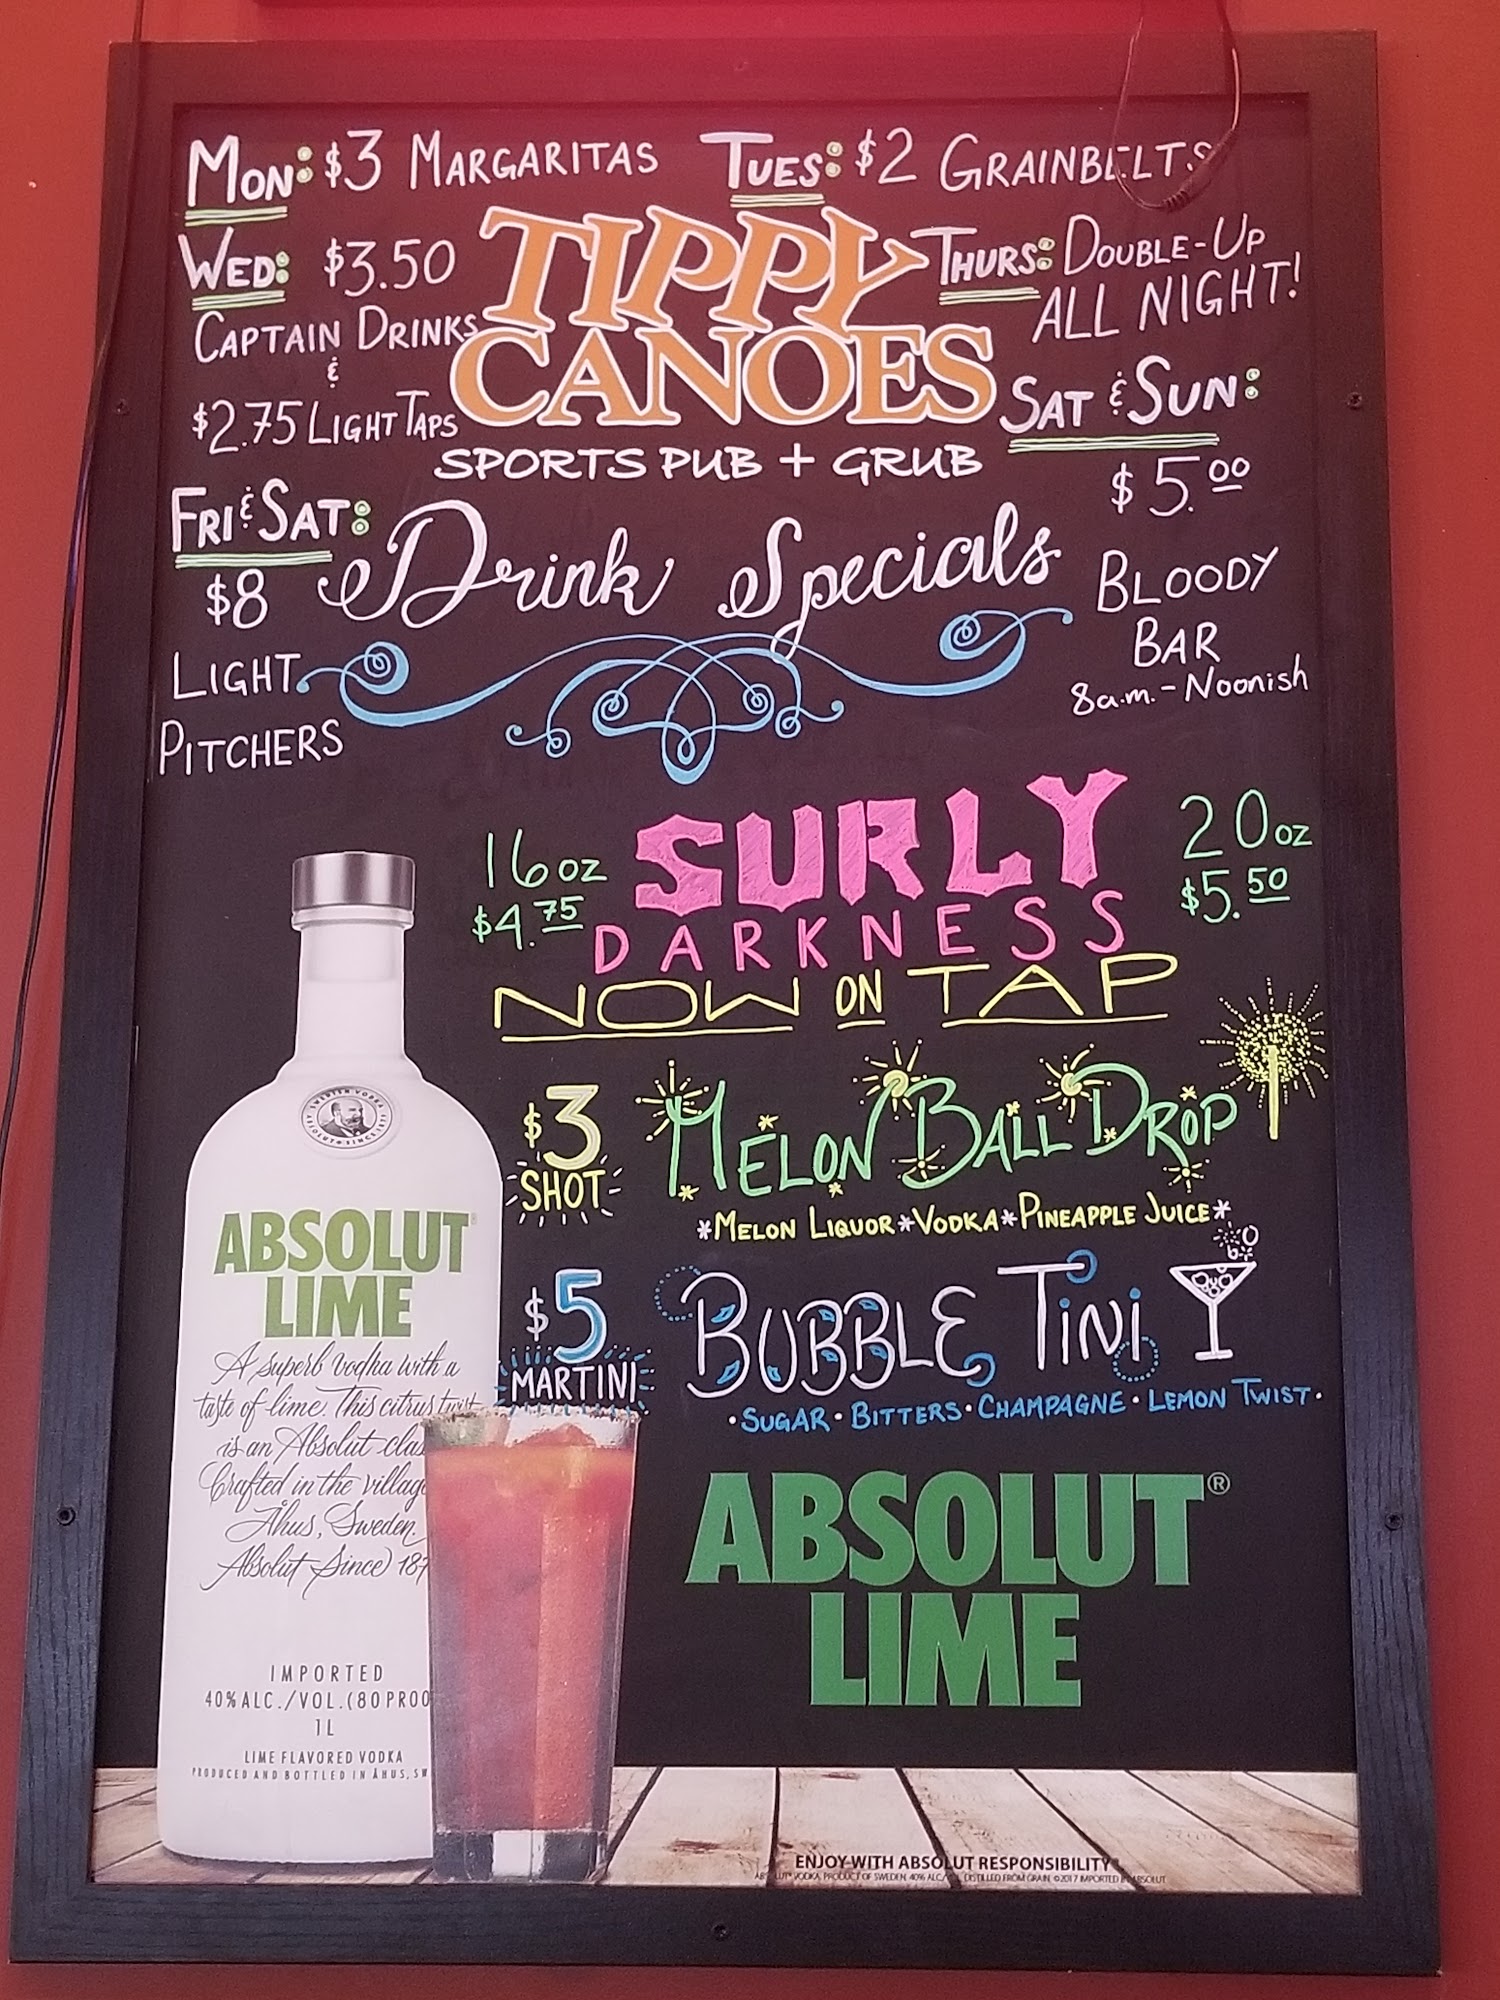 MON: $3 MARGARITAS
TUES: $2 GRAINBELTS
WED: $3.50
CAPTAIN DRINKS
&
$2.75 LIGHT TAPS
TIPPY
CANOES
SPORTS PUB + GRUB
THURS: DOUBLE-UP
ALL NIGHT!
FRI & SAT:
$8
LIGHT
PITCHERS
Drink Specials
SAT & SUN:
$5.00
BLOODY
BAR
8a.m.-Noonish
16oz
$4.75
SURLY
DARKNESS
20oz
$5.50
NOW ON TAP
$3
SHOT
MELON BALL DROP
*MELON LIQUOR*VODKA*PINEAPPLE JUICE*
$5
MARTINI
BUBBLE TINI
·SUGAR·BITTERS·CHAMPAGNE·LEMON TWIST·
SWEDISH VODKA
ABSOLUT
LIME
A superb vodka with a
taste of lime. This citrus twist
is an Absolut clas
Crafted in the village
Åhus, Sweden.
Absolut Since 187
IMPORTED
40%ALC./VOL.(80 PROO
1L
LIME FLAVORED VODKA
PRODUCED AND BOTTLED IN ÅHUS, SW
ABSOLUT®
LIME
ENJOY WITH ABSOLUT RESPONSIBILITY®
VODKA, PRODUCT OF SWEDEN. 40% ALC./ DISTILLED FROM GRAIN. ©2017 IMPORTED BY ABSOLUT